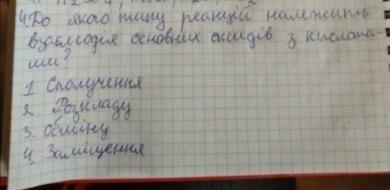 4. До якого типу реакцій належить
взаємодія основних оксидів з кислота-
ми?
1 Сполучення
2. Розкладу
3. Обміну
4. Заміщення